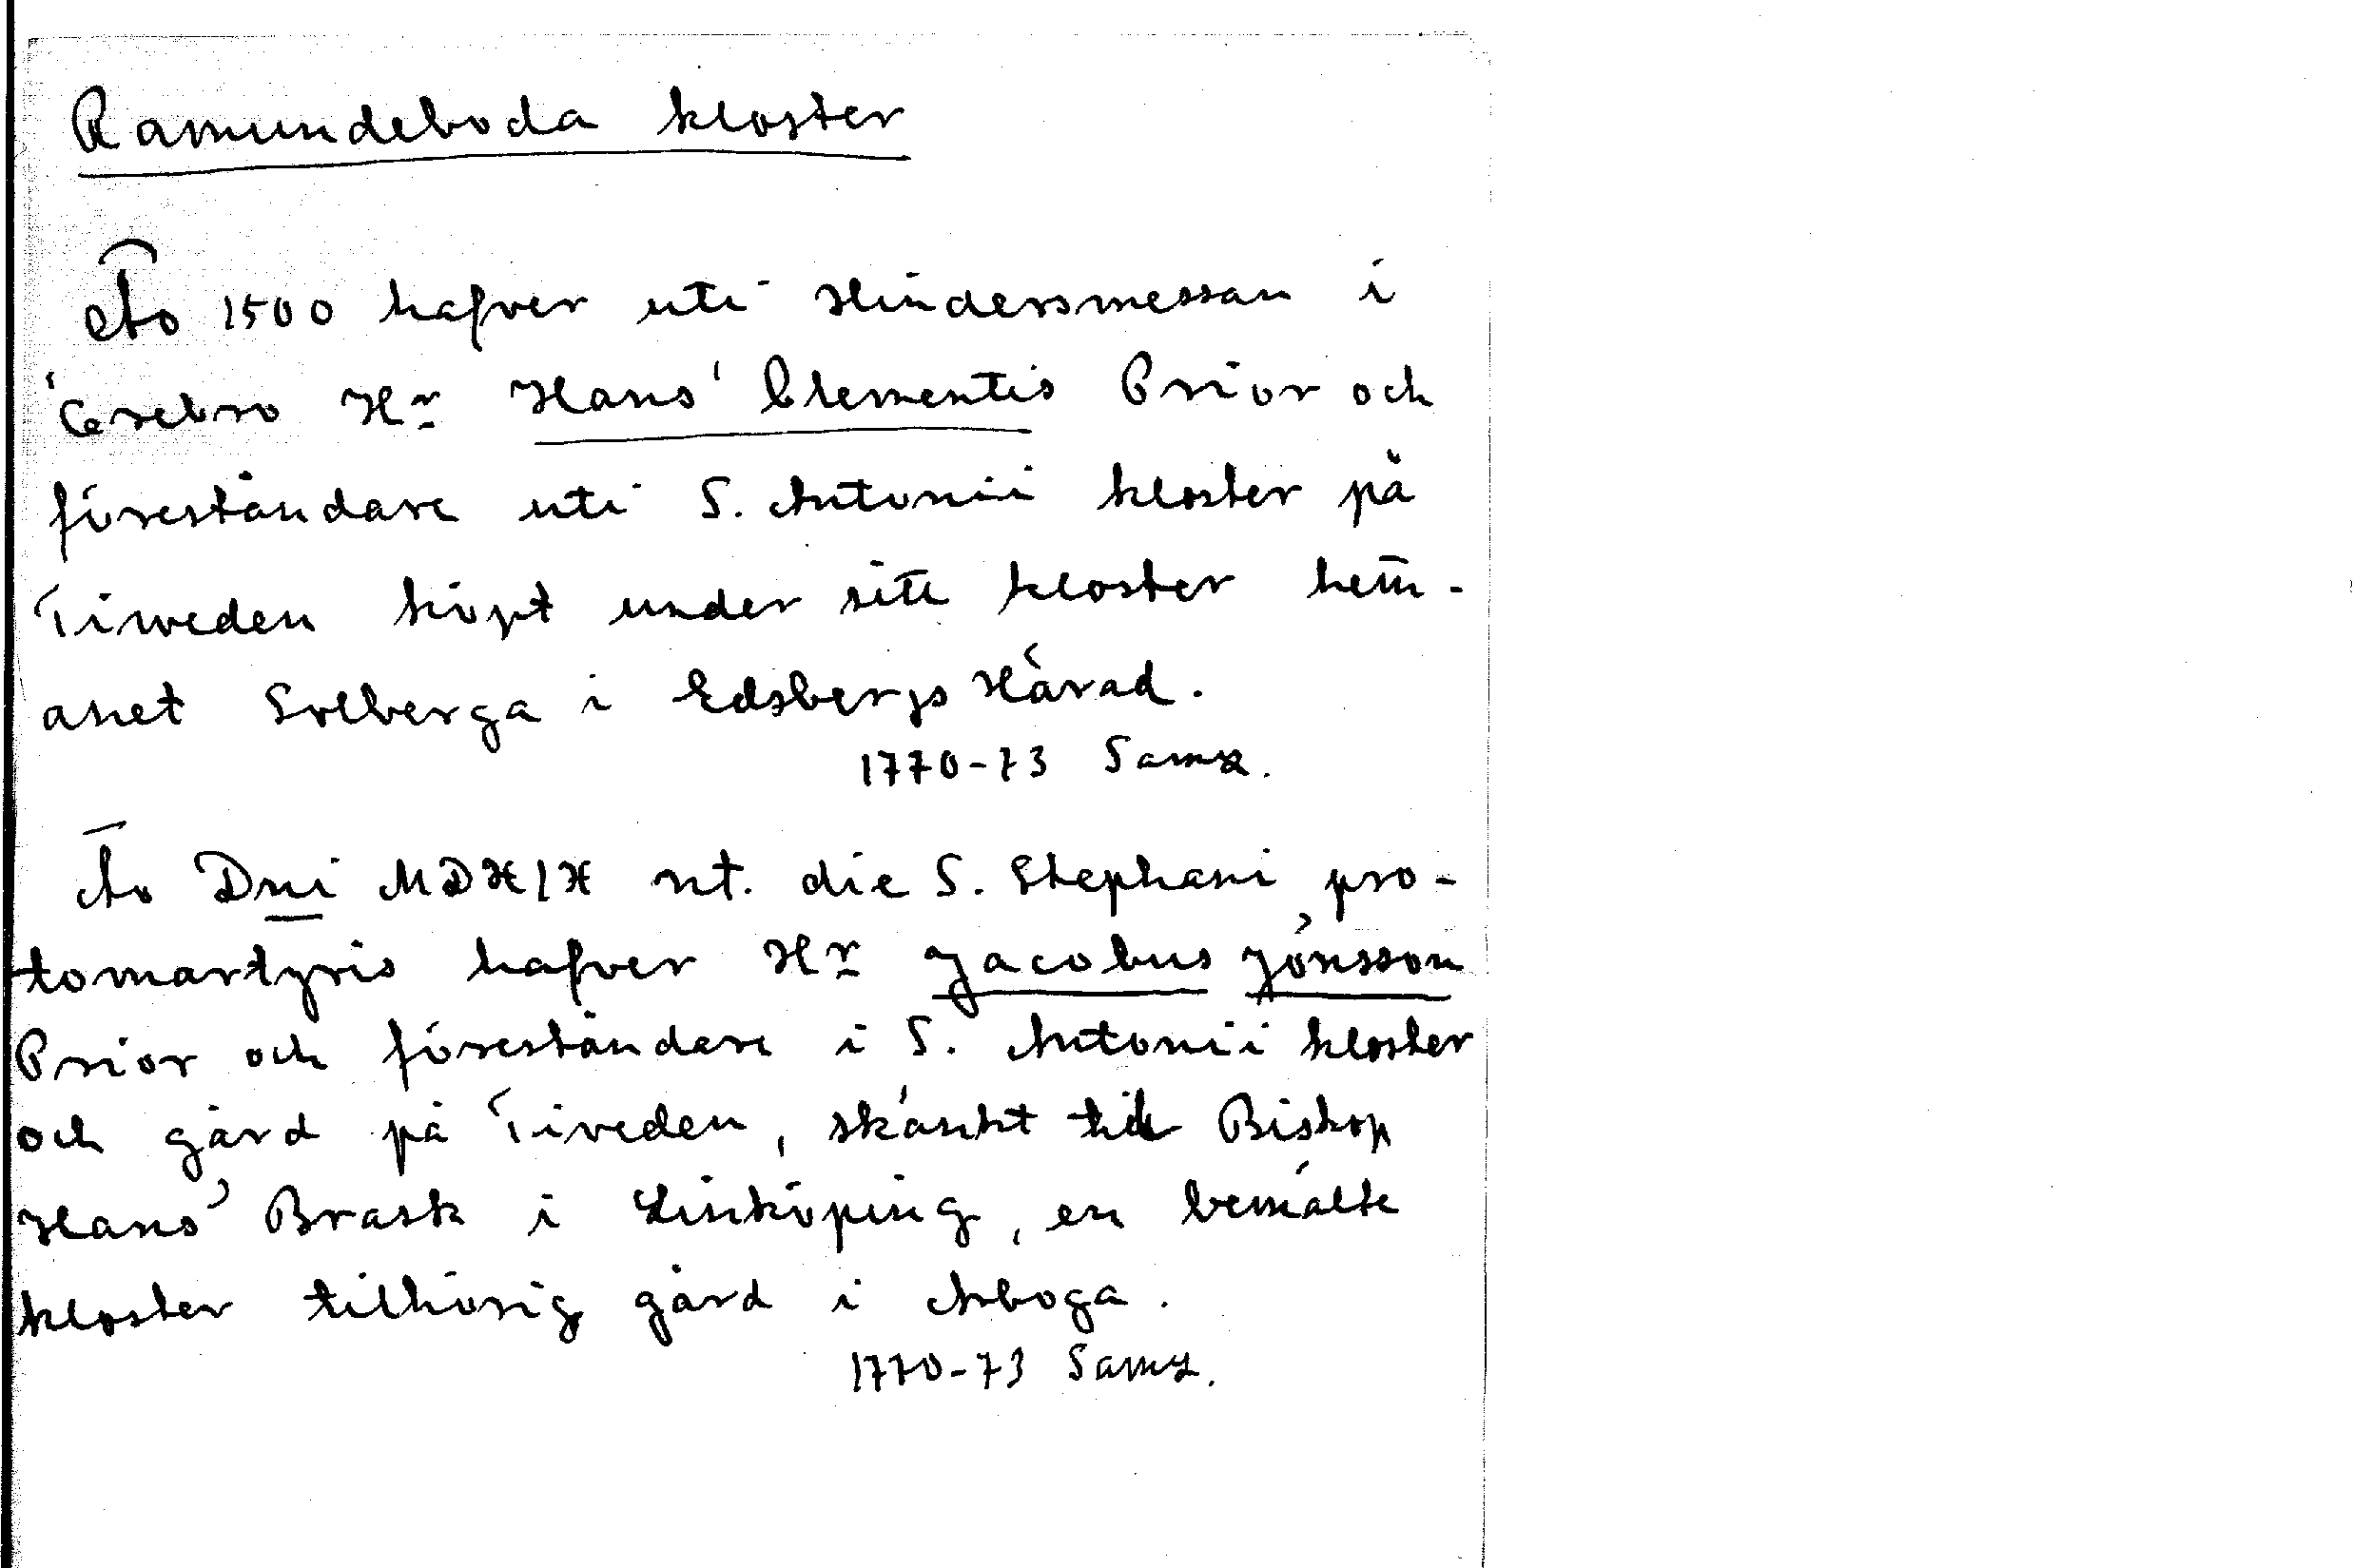 Ramundeboda kloster
Ao 1500 hafver uti Hindersmessan i
Örebro Hr Hans Clementis Prior och
föreståndare uti S. Antonii kloster på
Tiweden köpt under sitt kloster hem̄-
anet Solberga i Edsbergs Härad.
1770-73 Saml.
Ao Dni MDXIX ut. die S. Stephani pro-
tomartyris hafver Hr Jacobus Jönsson
Prior och föreståndare i S. Antonii kloster
och gård på Tiveden, skänkt till Biskop
Hans Brask i Linköping, en bemälte
kloster tilhörig gård i Arboga.
1770-73 Saml.